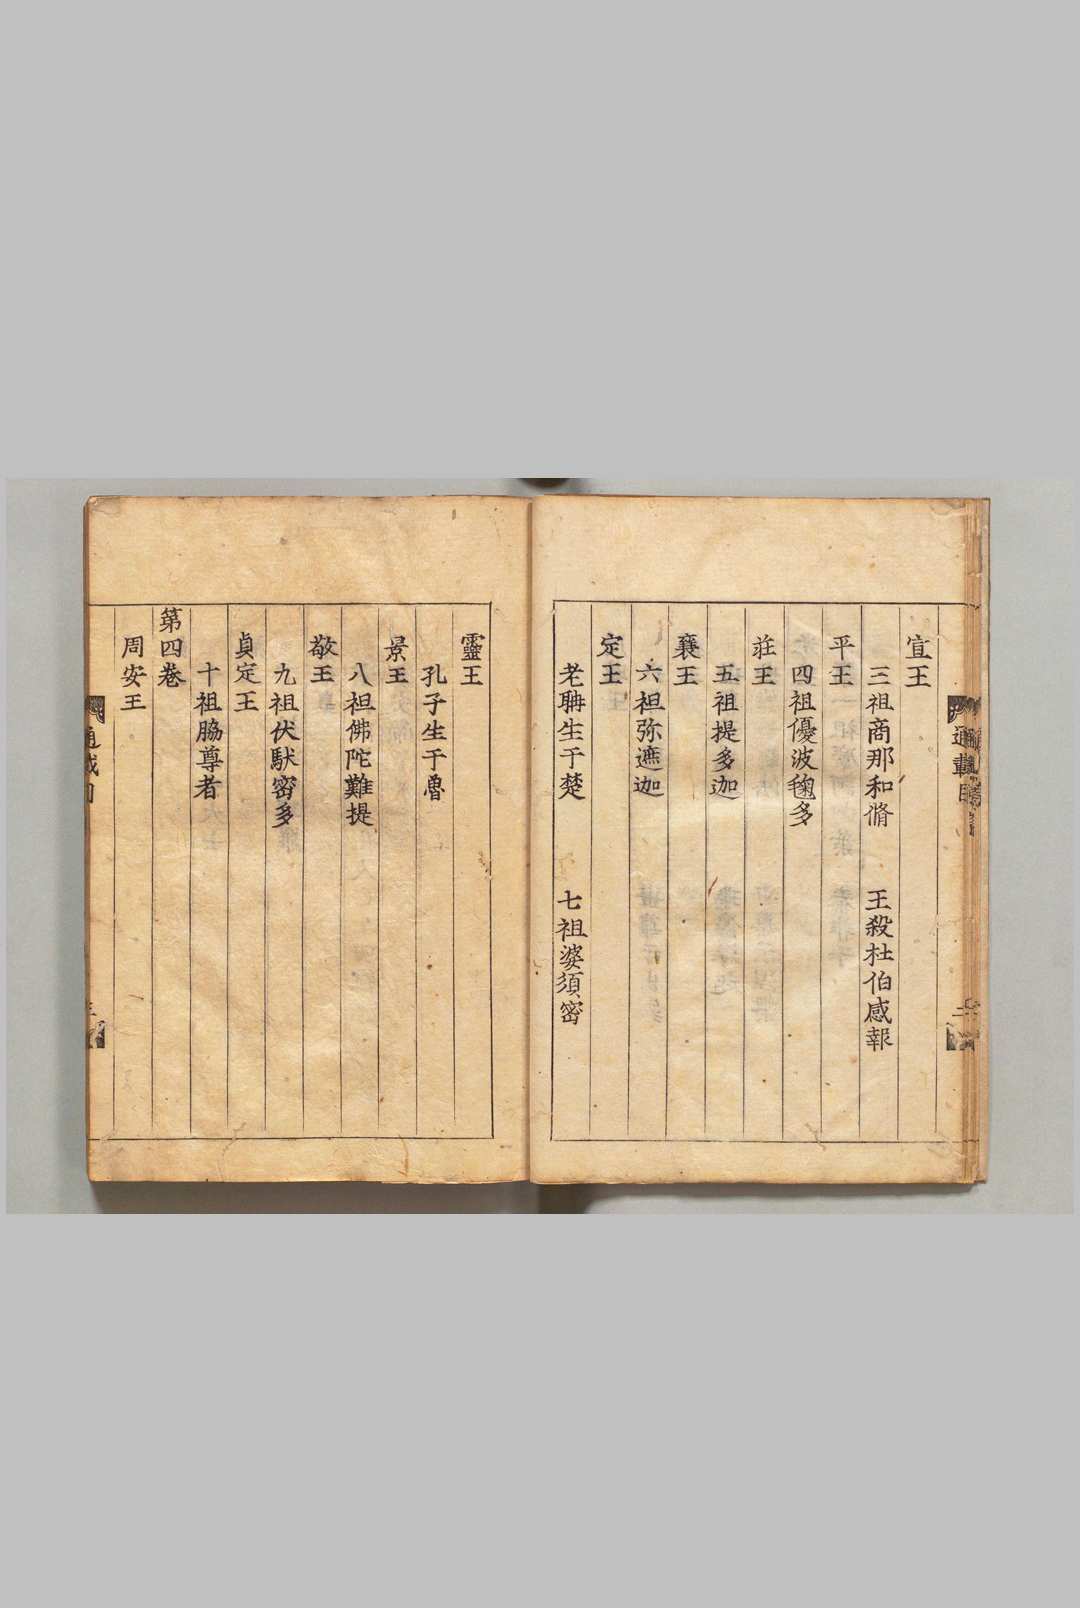 宣王
三祖商那和脩　王殺杜伯感報
平王
四祖優波毱多
莊王
五祖提多迦
襄王
六祖弥遮迦
定王
老聃生于楚　七祖婆須密
靈王
孔子生于魯
景王
八祖佛陀難提
敬王
九祖伏䭾密多
貞定王
十祖脇尊者
第四卷
周安王